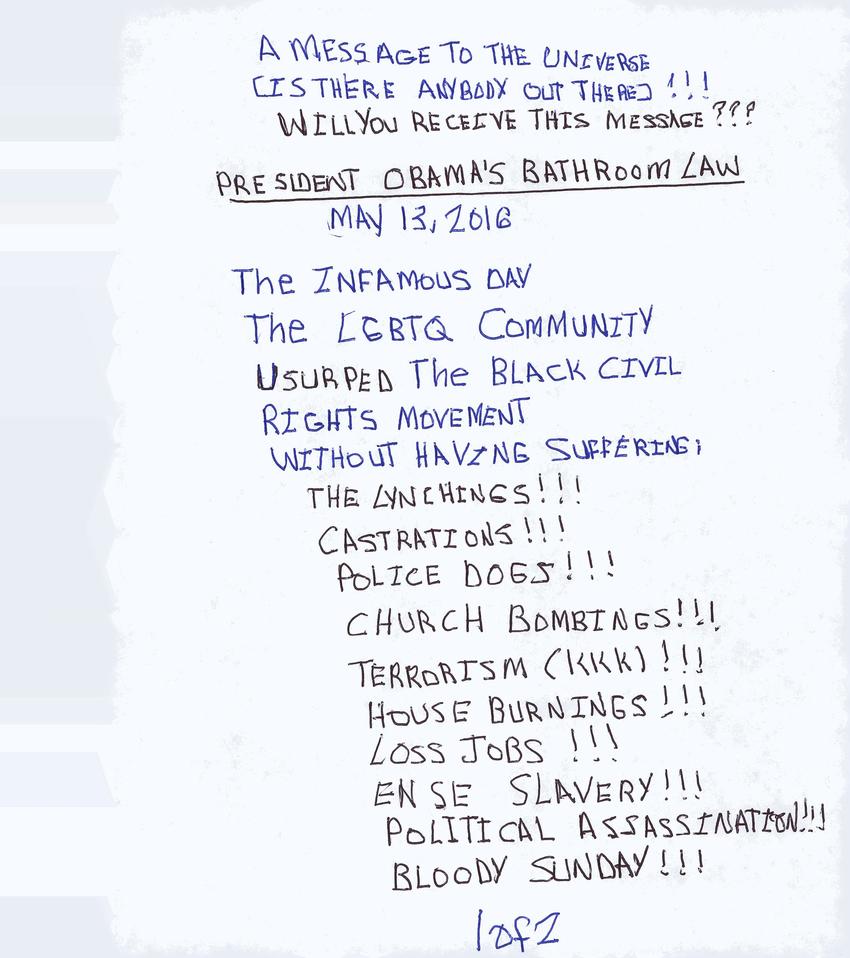 A MESSAGE TO THE UNIVERSE
[IS THERE ANYBODY OUT THERE] !!!
WILL YOU RECEIVE THIS MESSAGE ???
PRESIDENT OBAMA'S BATHROOM LAW
MAY 13, 2016
The INFAMOUS DAY
The LGBTQ COMMUNITY
USURPED The BLACK CIVIL
RIGHTS MOVEMENT
WITHOUT HAVING SUFFERING;
THE LYNCHINGS!!!
CASTRATIONS!!!
POLICE DOGS!!!
CHURCH BOMBINGS!!!
TERRORISM (KKK)!!!
HOUSE BURNINGS!!!
LOSS JOBS !!!
EN SE SLAVERY!!!
POLITICAL ASSASSINATION!!!
BLOODY SUNDAY!!!
1 of 2